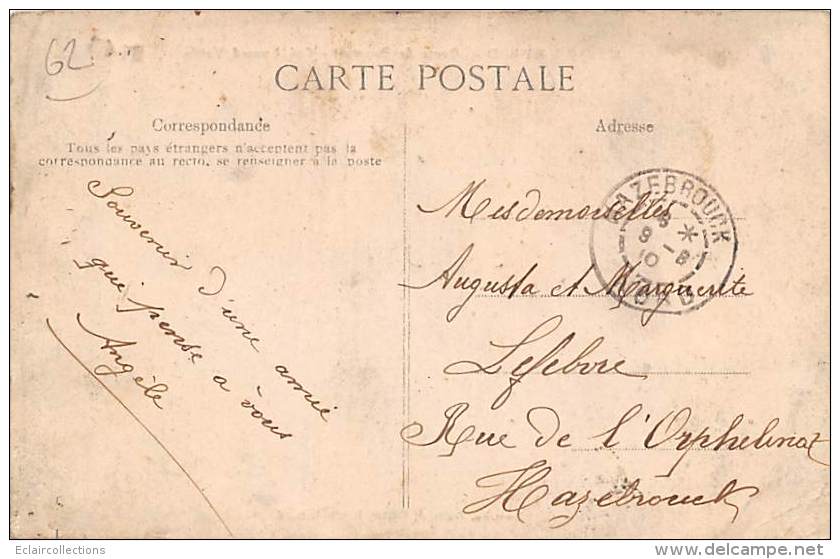 62
CARTE POSTALE
Correspondance
Tous les pays étrangers n'acceptent pas la
correspondance au recto, se renseigner à la poste
Souvenir d'une amie
qui pense à vous
Angèle
Adresse
Mesdemoiselles
Augusta et Marguerite
Lefebvre
Rue de l'Orphelinat
Hazebrouck
HAZEBROUCK
NORD
Eclaircollections
www.delcampe.net